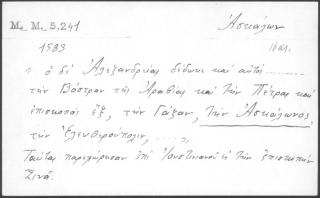 M. M. 5,241 Ἀσκάλων
1583
ὁ δὲ Ἀλεξανδρείας δέδωκε καὶ αὐτὸς ..........
τὴν Βόστραν τῆς Ἀραβίας καὶ τὴν Πέτραν καὶ
ἐπισκοπὰς ἕξ, τὴν Γάζαν, τὴν Ἀσκάλωνος,
τὴν Ἐλευθερούπολιν, ....,
Ταῦτα παρεχώρησαν ἐπὶ Ἰουστινιανοῦ τὴν ἐπισκοπὴν
Σινᾶ.